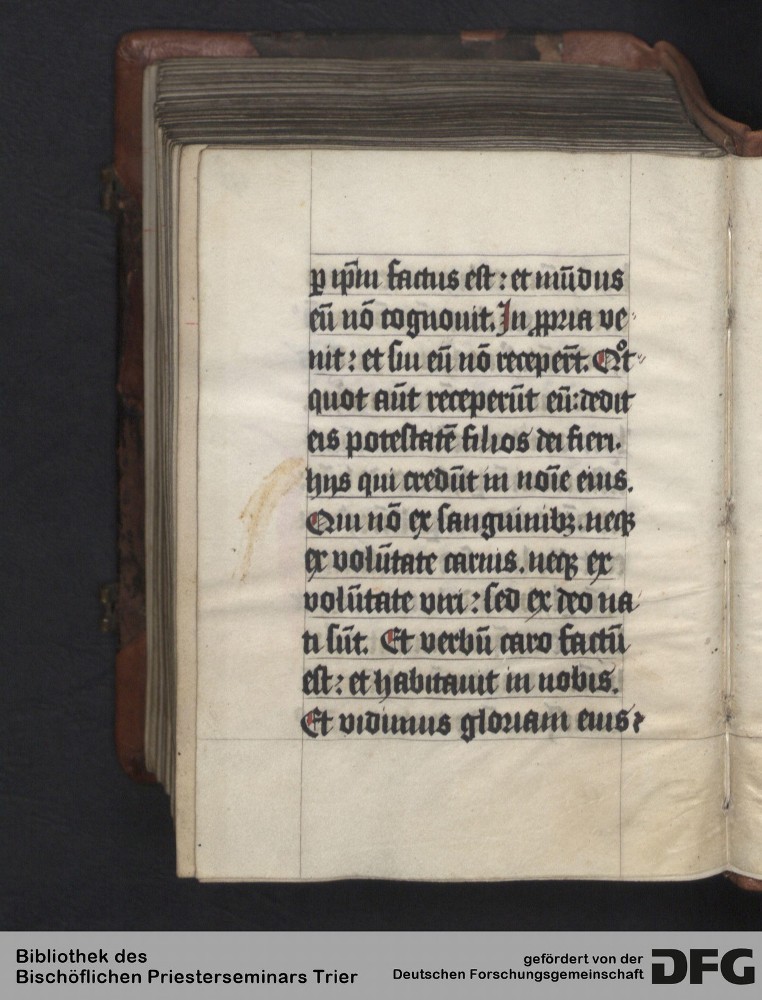 ꝑ ip̄m factus est : et mūdus
eū nō cognouit. In ꝓpria ve-
nit : et sui eū nō receper̄t. Qͦt-
quot aūt receperūt eū : dedit
eis potestatē filios dei fieri.
hijs qui credūt in noīe eius.
Qui nō ex sanguinibꝫ. neqꝫ
ex volūtate carnis. neqꝫ ex
volūtate viri : sed ex deo na
ti sūt. Et verbū caro factū
est : et habitauit in nobis.
Et vidimus gloriam eius :
Bibliothek des
Bischöflichen Priesterseminars Trier
gefördert von der
Deutschen Forschungsgemeinschaft
DFG